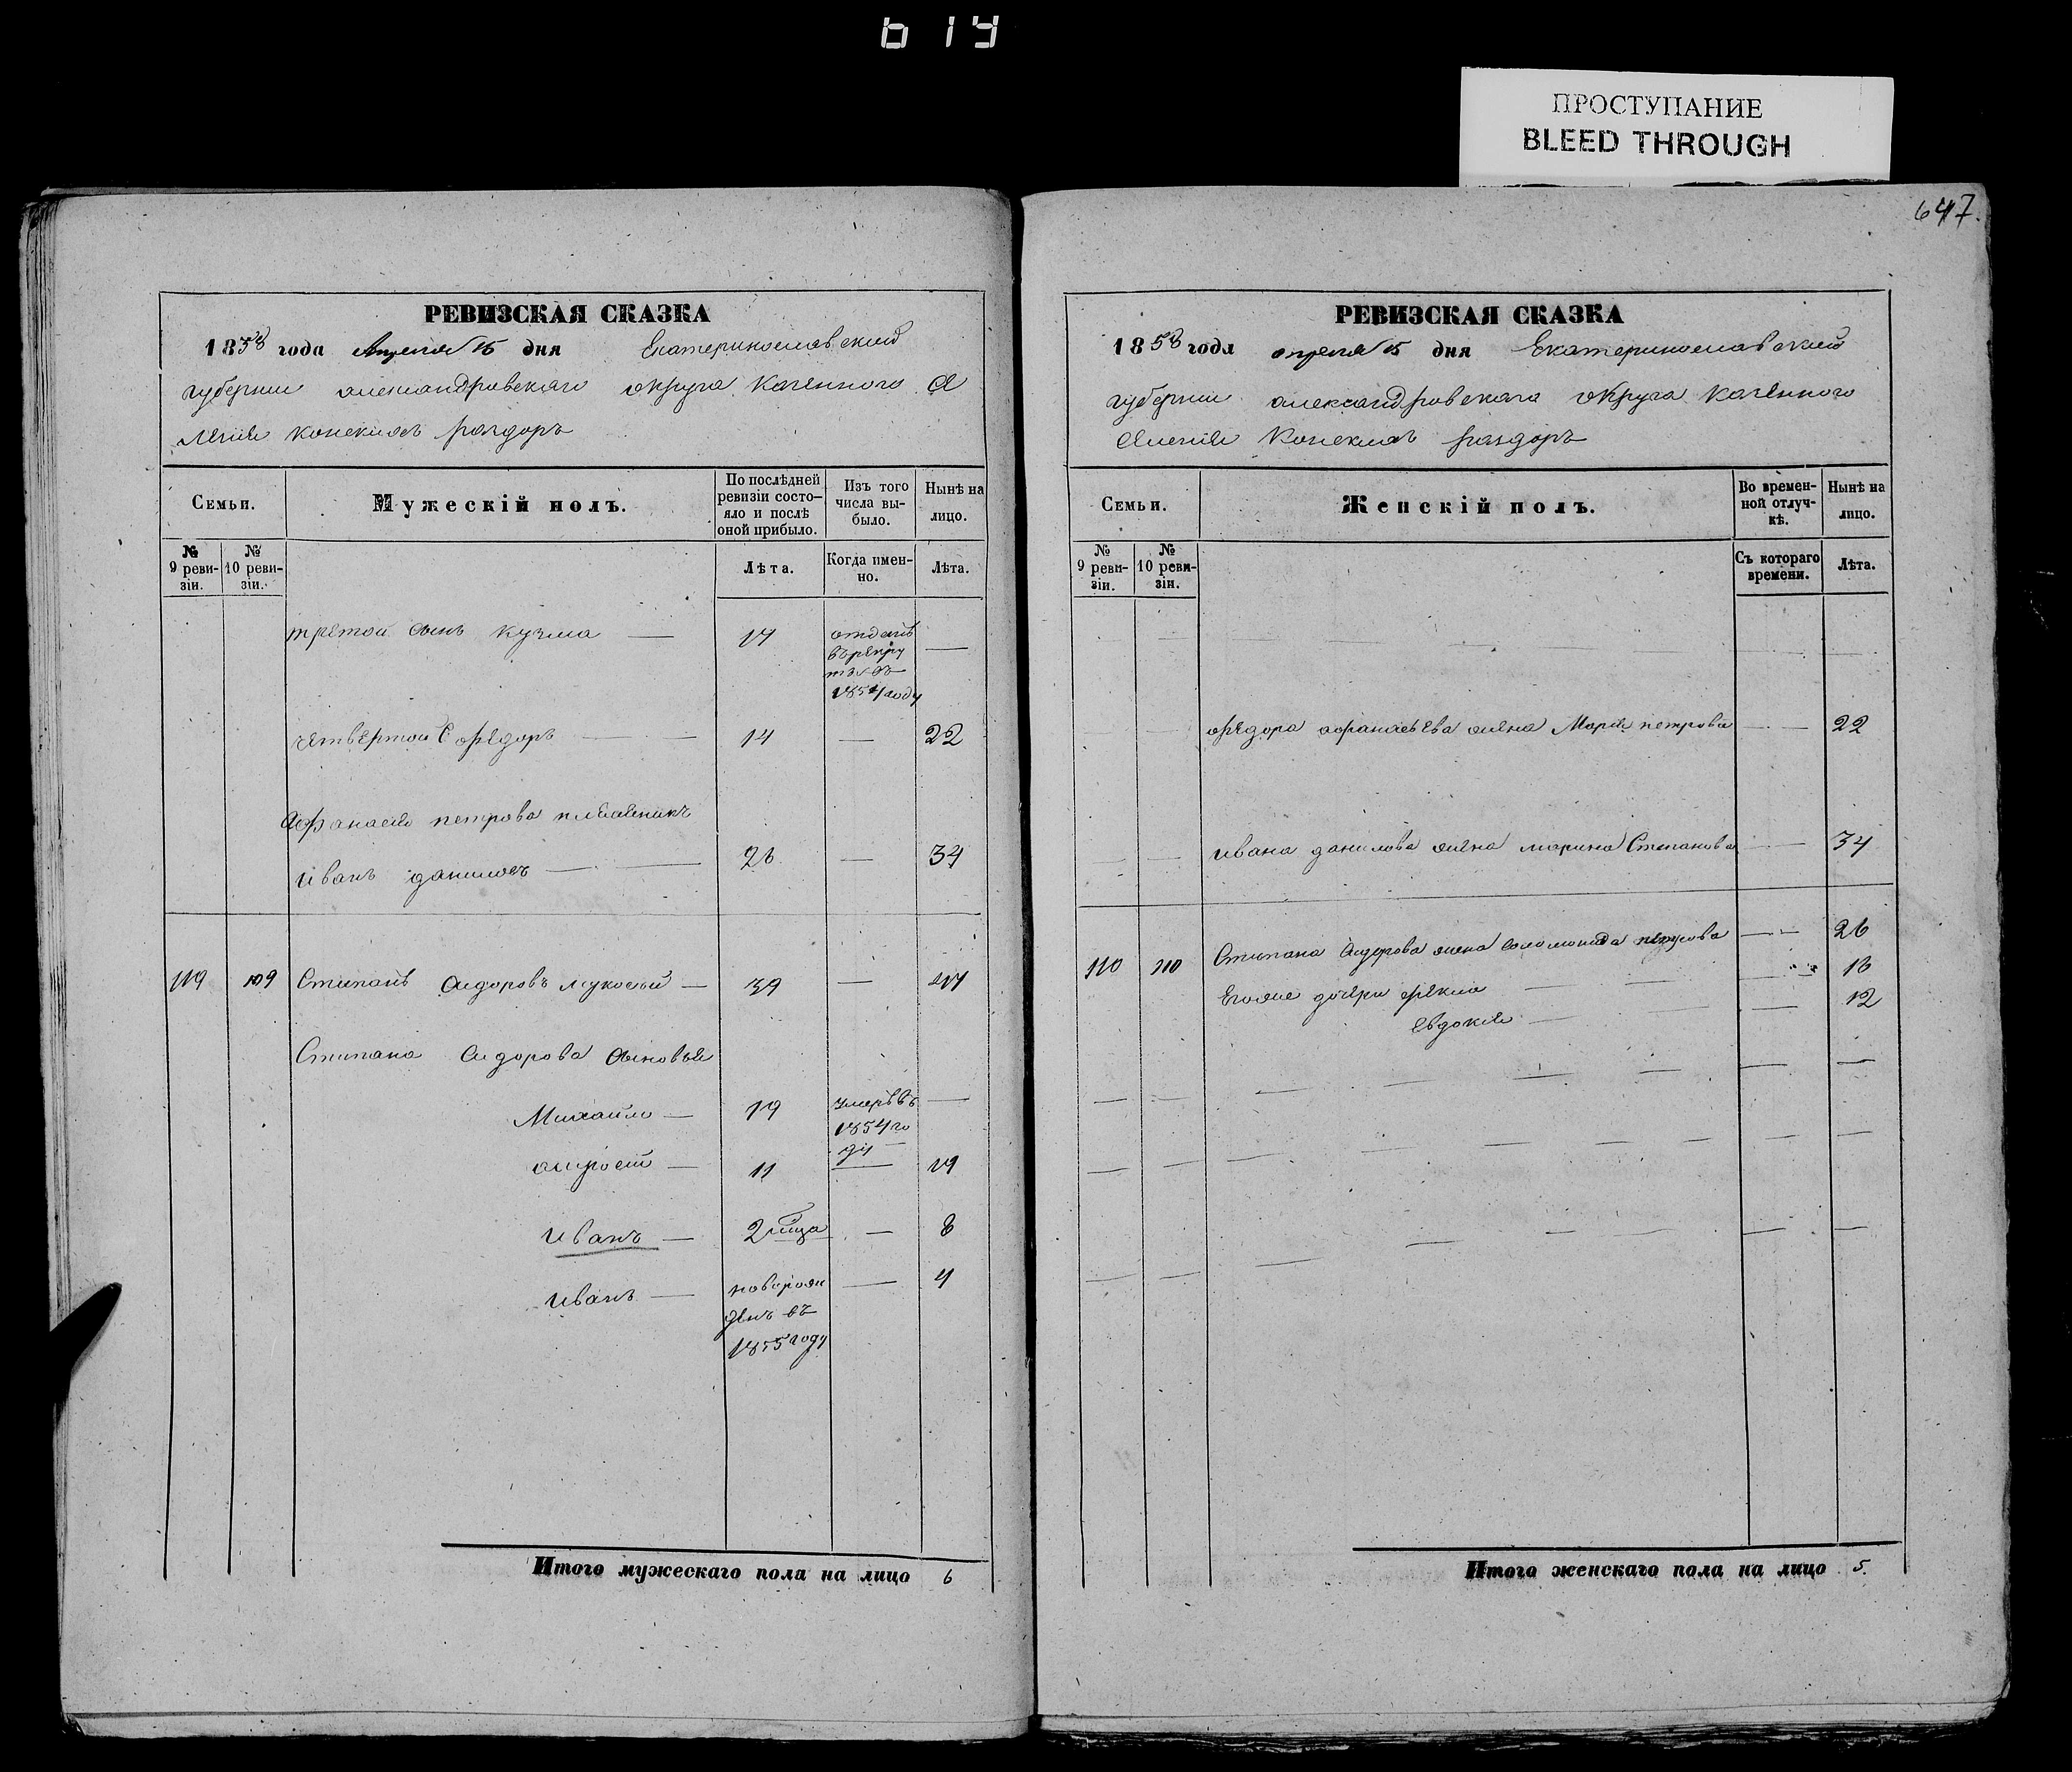 619
ПРОСТУПАНИЕ
BLEED THROUGH
647.
РЕВИЗСКАЯ СКАЗКА
1858 года Апреля 15 дня Екатеринославский
губернии александровскаго округа казенного Се
ления конских раздоръ
Семьи.
Мужескій полъ.
По послѣдней ревизіи состо-
яло и послѣ
оной прибыло.
Изъ того
числа вы-
было.
Нынѣ на
лицо.
№
9 реви-
зіи.
№
10 реви-
зіи.
Лѣта.
Когда имен-
но.
Лѣта.
третой сынъ кузма — 17 отданъ —
въ рекру
1854 году
четвертой Федоръ — — 14 — 22
Афанасия петрова племеникъ
иванъ даниловъ — — 26 — 34
109 Степанъ Сидоровъ — 39 — 47
Степана Сидорова Сыновья
Михайло — 19 умеръ въ —
1854 го
ду
— 11 — 19
иванъ — — 8
иванъ — новорож — 4
денъ въ
1855 году
Итого мужескаго пола на лицо 6
РЕВИЗСКАЯ СКАЗКА
1858 года апреля 15 дня Екатеринославский
губернии александровскаго округа казенного
Селения Конских раздоръ
Семьи.
Женскій полъ.
Во времен-
ной отлуч-
кѣ.
Нынѣ на
лицо.
№
9 реви-
зіи.
№
10 реви-
зіи.
Съ котораго
времени.
Лѣта.
Федора афанасьева жена Мария петрова — — 22
ивана данилова жена марина Степанова — — 34
110 110 Степана Сидорова жена соломонида петрова — — 26
Егоже дочери фекла — —
Евдокия — — 12
Итого женскаго пола на лицо 5.